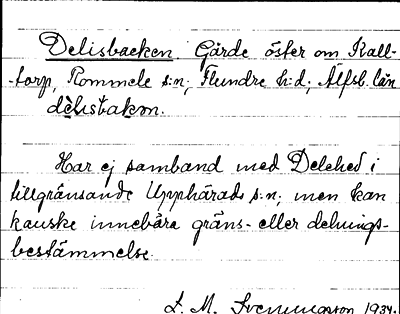 Delisbacken Gärde öster om Kall-
-torp, Rommele s:n; Flundre h:d; Älfsb. län
dèlıstakɷn.
Har ej samband med Delehed i
tillgränsande Upphärads s:n; men kan
kanske innebära gräns- eller delnings-
bestämmelse.
L. M. Svenungsson 1934.